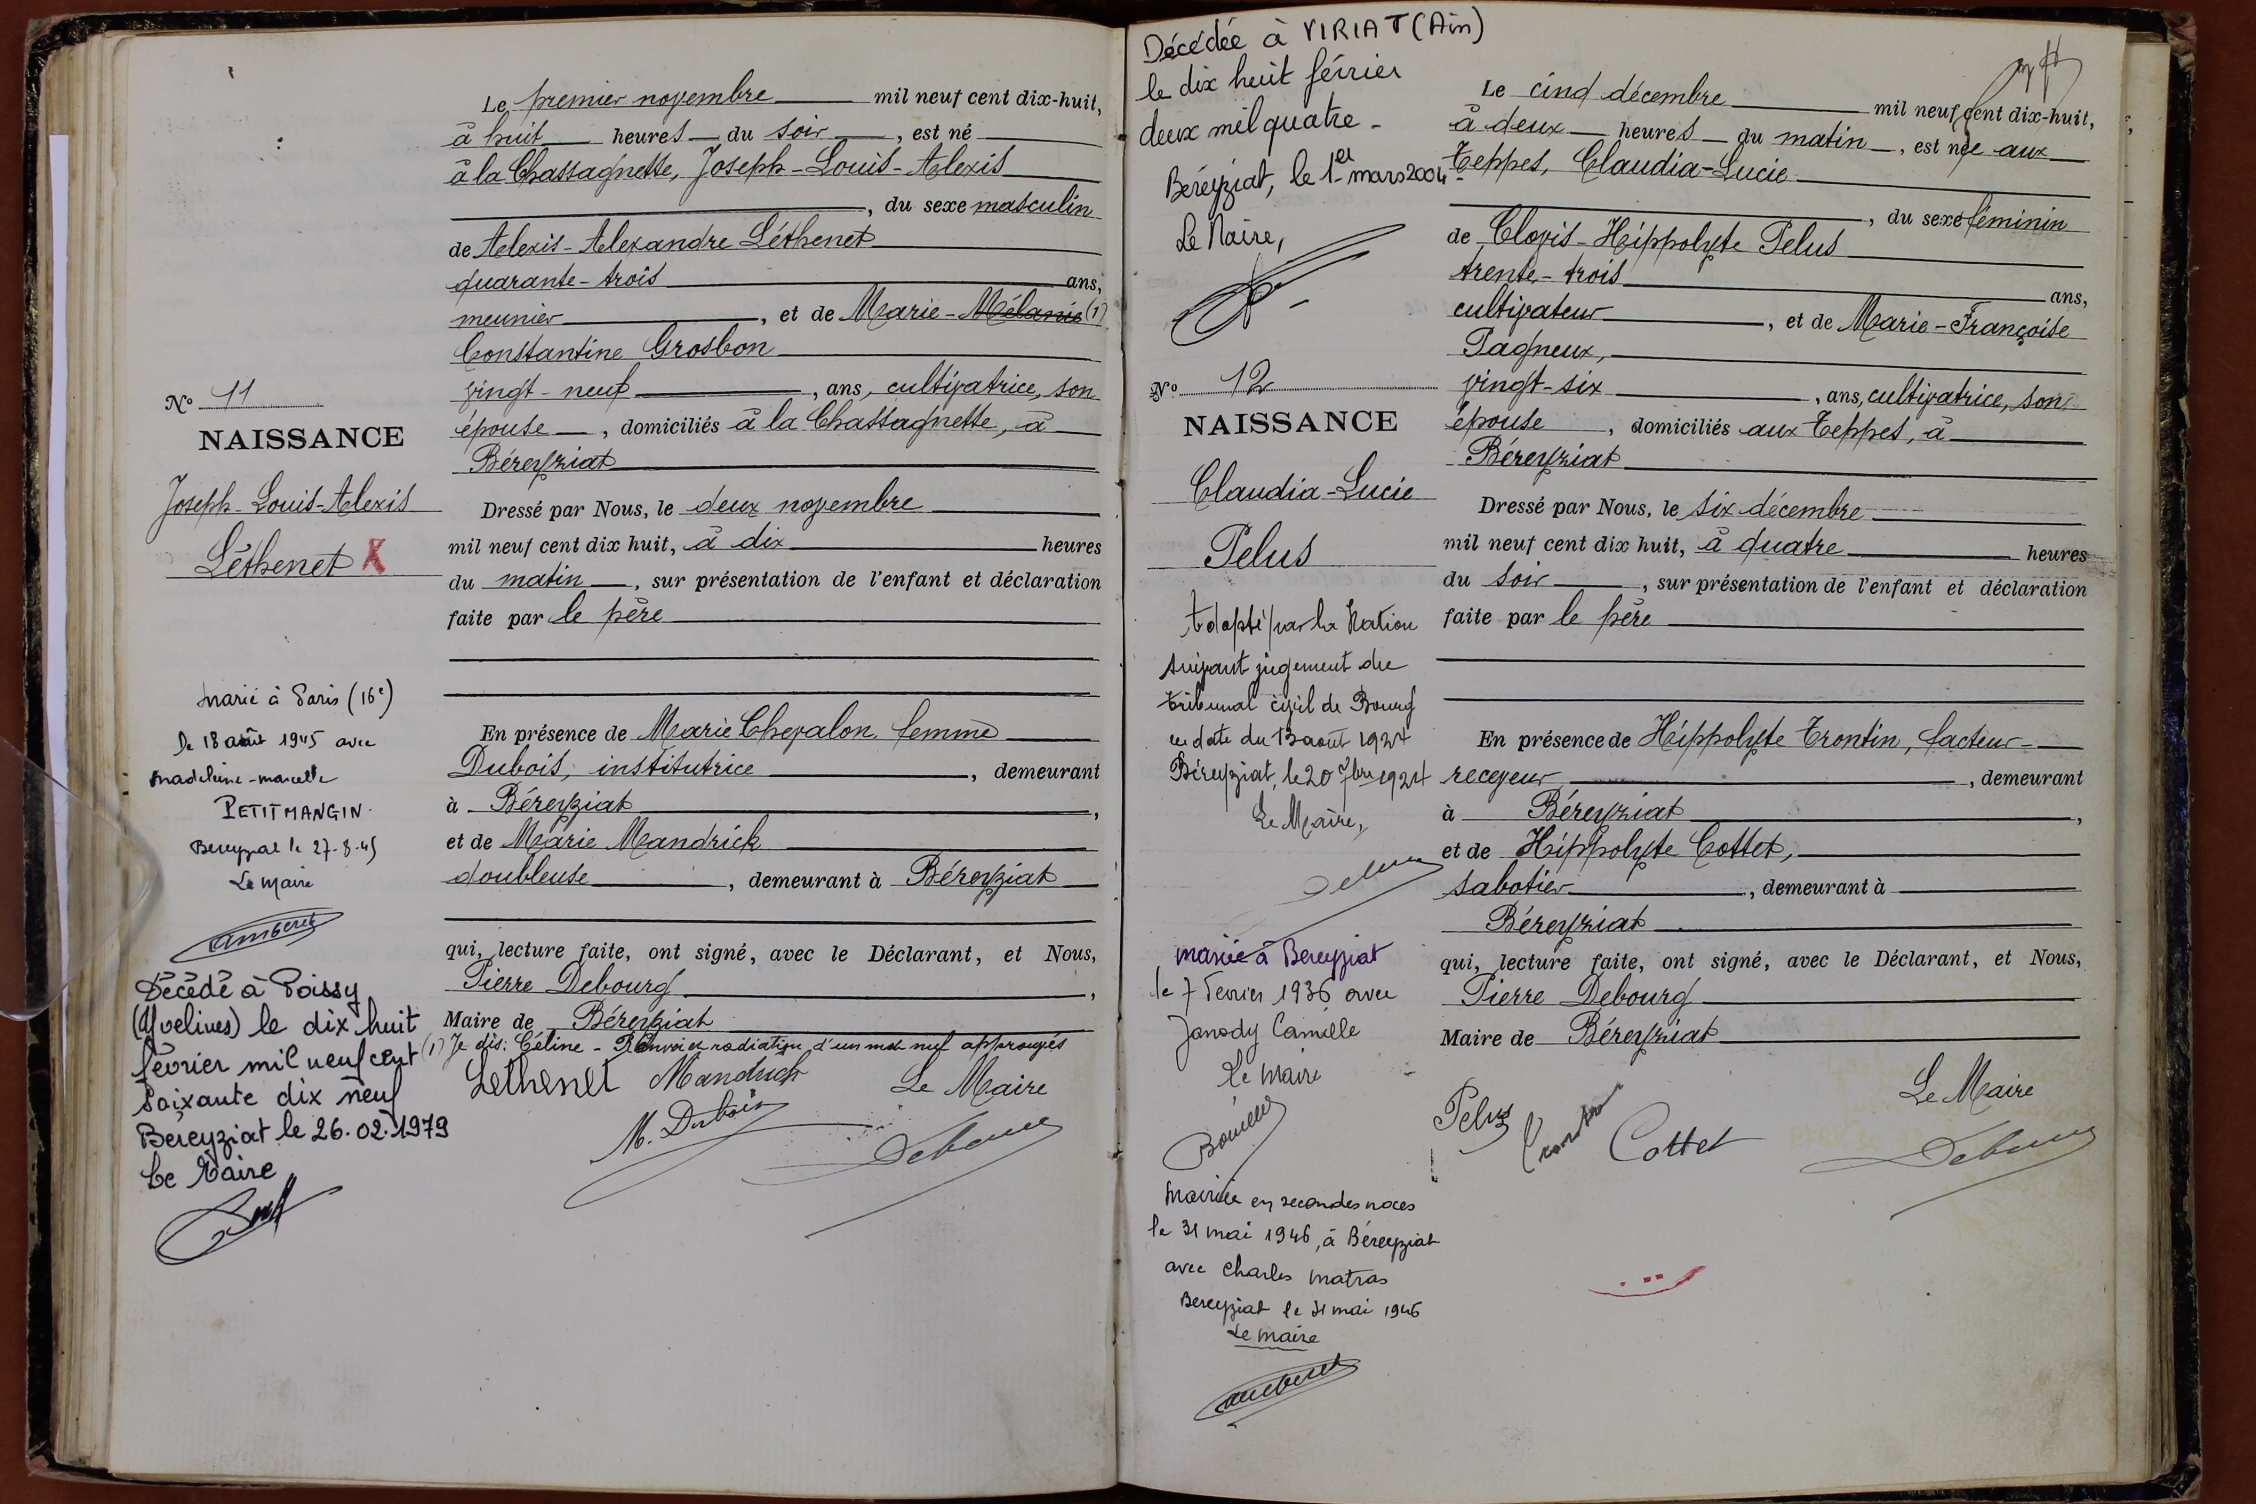 N° 11
NAISSANCE
Joseph-Louis-Alexis
Léthenet
Marié à Paris (16e)
Le 18 août 1945 avec
Madeleine-Marcelle
PETITMANGIN.
Bereyziat le 27-8-45
Le Maire
Amberet
Décédé à Poissy
(Yvelines) le dix huit
février mil neuf cent
soixante dix neuf
Béreyziat le 26.02.1979
Le Maire
Le premier novembre mil neuf cent dix-huit,
à huit heures du soir, est né
à la Chassagnette, Joseph-Louis-Alexis
, du sexe masculin
de Alexis-Alexandre Léthenet
quarante-trois ans,
meunier, et de Marie-Mélanie (1)
Constantine Grosbon
vingt-neuf, ans, cultivatrice, son
épouse, domiciliés à la Chassagnette, à
Béreyziat
Dressé par Nous, le deux novembre
mil neuf cent dix huit, à dix heures
du matin, sur présentation de l'enfant et déclaration
faite par le père
En présence de Marie Chevalon femme
Dubois, institutrice, demeurant
à Béreyziat,
et de Marie Mandrick
doubleuse, demeurant à Béreyziat
qui, lecture faite, ont signé, avec le Déclarant, et Nous,
Pierre Debourg,
Maire de Béreyziat
(1) Je dis: Céline - Renvoi et radiation d'un mot nul approuvés
Lethenet Mandrick Le Maire
M. Dubois Debourg
Décédée à VIRIAT (Ain)
le dix huit février
deux mil quatre -
Béreyziat, le 1er mars 2004
Le Maire,
N° 12
NAISSANCE
Claudia-Lucie
Pelus
Adopté par la Nation
suivant jugement du
tribunal civil de Bourg
en date du 13 août 1924
Béreyziat, le 20 7bre 1924
Le Maire,
Debourg
mariée à Bereyziat
le 7 Février 1936 avec
Janody Camille
Le Maire
Mariée en secondes noces
le 31 mai 1946, à Béreyziat
avec Charles Matras
Bereyziat le 31 mai 1946
Le Maire
Amberet
Le cinq décembre mil neuf cent dix-huit,
à deux heures du matin, est née aux
Teppes, Claudia-Lucie
, du sexe féminin
de Clovis-Hippolyte Pelus
trente-trois ans,
cultivateur, et de Marie-Françoise
Pagneux,
vingt-six, ans, cultivatrice, son
épouse, domiciliés aux Teppes, à
Béreyziat
Dressé par Nous, le six décembre
mil neuf cent dix huit, à quatre heures
du soir, sur présentation de l'enfant et déclaration
faite par le père
En présence de Hippolyte Trontin, facteur-
receveur, demeurant
à Béreyziat,
et de Hippolyte Cottet,
sabotier, demeurant à
Béreyziat
qui, lecture faite, ont signé, avec le Déclarant, et Nous,
Pierre Debourg
Maire de Béreyziat
Le Maire
Pelus Trontin Cottet Debourg